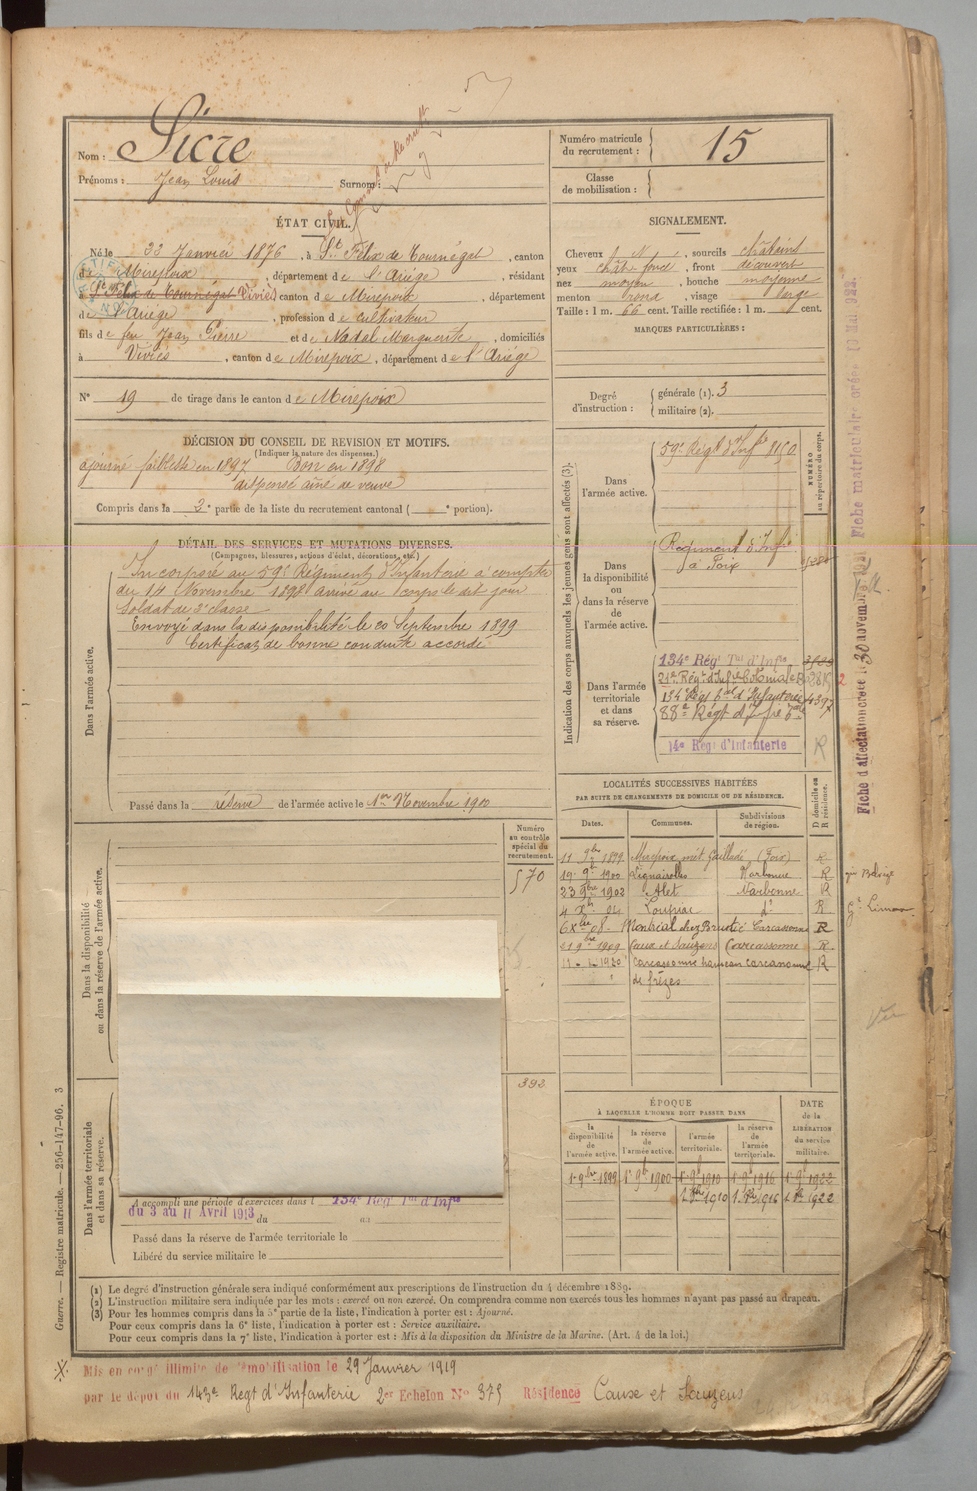 Nom : Sicre
Prénoms : Jean Louis Surnom :
Numéro matricule du recrutement : 15
Classe de mobilisation :
ÉTAT CIVIL.
Né le 23 Janvier 1876, à St Félix de Tournégat, canton
de Mirepoix, département de l'Ariège, résidant
à St Félix de Tournégat Viviès canton de Mirepoix, département
de l'Ariège, profession de cultivateur
fils de feu Jean Pierre et de Nadal Marguerite, domiciliés
à Viviès, canton de Mirepoix, département de l'Ariège
N° 19 de tirage dans le canton de Mirepoix
SIGNALEMENT.
Cheveux N, sourcils châtains
yeux chât. foncé, front découvert
nez moyen, bouche moyenne
menton rond, visage large
Taille : 1 m. 66 cent. Taille rectifiée : 1 m. cent.
MARQUES PARTICULIÈRES :
Degré d'instruction : générale (1). 3
militaire (2).
DÉCISION DU CONSEIL DE REVISION ET MOTIFS.
(Indiquer la nature des dispenses.)
ajourné faiblesse en 1897 Bon en 1898
dispensé aîné de veuve
Compris dans la 3e partie de la liste du recrutement cantonal ( e portion).
DÉTAIL DES SERVICES ET MUTATIONS DIVERSES.
(Campagnes, blessures, actions d'éclat, décorations, etc.)
Dans l'armée active.
Incorporé au 59e Régiment d'Infanterie à compter
du 14 Novembre 1898 arrivé au corps le dit jour
Soldat de 2e classe
Envoyé dans la disponibilité le 20 Septembre 1899
Certificat de bonne conduite accordé
Passé dans la réserve de l'armée active le 1er Novembre 1900
Indication des corps auxquels les jeunes gens sont affectés (3).
NUMÉRO au répertoire du corps.
Dans l'armée active.
59e Régt d'Infie
Dans la disponibilité ou dans la réserve de l'armée active.
Régiment d'Infie
à Foix
Dans l'armée territoriale et dans sa réserve.
134e Rég Tal d'Infie
21e Régt d'Infie Coloniale
134e Régt tal d'Infanterie 4397
88e Régt d'Infie tale
14e Régt d'Infanterie R
LOCALITÉS SUCCESSIVES HABITÉES
PAR SUITE DE CHANGEMENTS DE DOMICILE OU DE RÉSIDENCE.
Dates. Communes. Subdivisions de région. D domicile ou R résidence.
11 9bre 1899 Mirepoix (Foix) R
19 1900 Lignairolles Narbonne R
23 9bre 1902 Alet Narbonne R
4 Xbre 04 Loupiac do R
6 Xbre 08 Montréal chez Carcassonne R
21 9bre 1909 Caux et Sauzens Carcassonne R
11-2-1920 Carcassonne hameau Carcassonne R
de Grèzes
Dans la disponibilité ou dans la réserve de l'armée active.
Numéro au contrôle spécial du recrutement.
570
392
Dans l'armée territoriale et dans sa réserve.
A accompli une période d'exercices dans l 134e Rég Tal d'Infie
du 3 au 11 Avril 1913 du au
Passé dans la réserve de l'armée territoriale le
Libéré du service militaire le
ÉPOQUE
À LAQUELLE L'HOMME DOIT PASSER DANS
la disponibilité de l'armée active. la réserve de l'armée active. l'armée territoriale. la réserve de l'armée territoriale.
DATE de la LIBÉRATION du service militaire.
1er 9bre 1899 1er 9bre 1900 1er 9bre 1910 1er 9bre 1916 1er 9bre 1922
1. 1910 1. 1916 1. 1922
(1) Le degré d'instruction générale sera indiqué conformément aux prescriptions de l'instruction du 4 décembre 1889.
(2) L'instruction militaire sera indiquée par les mots : exercé ou non exercé. On comprendra comme non exercés tous les hommes n'ayant pas passé au drapeau.
(3) Pour les hommes compris dans la 5e partie de la liste, l'indication à porter est : Ajourné.
Pour ceux compris dans la 6e liste, l'indication à porter est : Service auxiliaire.
Pour ceux compris dans la 7e liste, l'indication à porter est : Mis à la disposition du Ministre de la Marine. (Art. 4 de la loi.)
Mis en congé illimité de démobilisation le 29 Janvier 1919
par le dépôt du 143e Regt d'Infanterie 2er Echelon N° 375 Résidence Caux et Sauzens
Guerre. — Registre matricule. — 256-147-96. 3
Fiche d'affectation créée le 30 novembre
Fiche matriculaire créée 10 Mai 922.